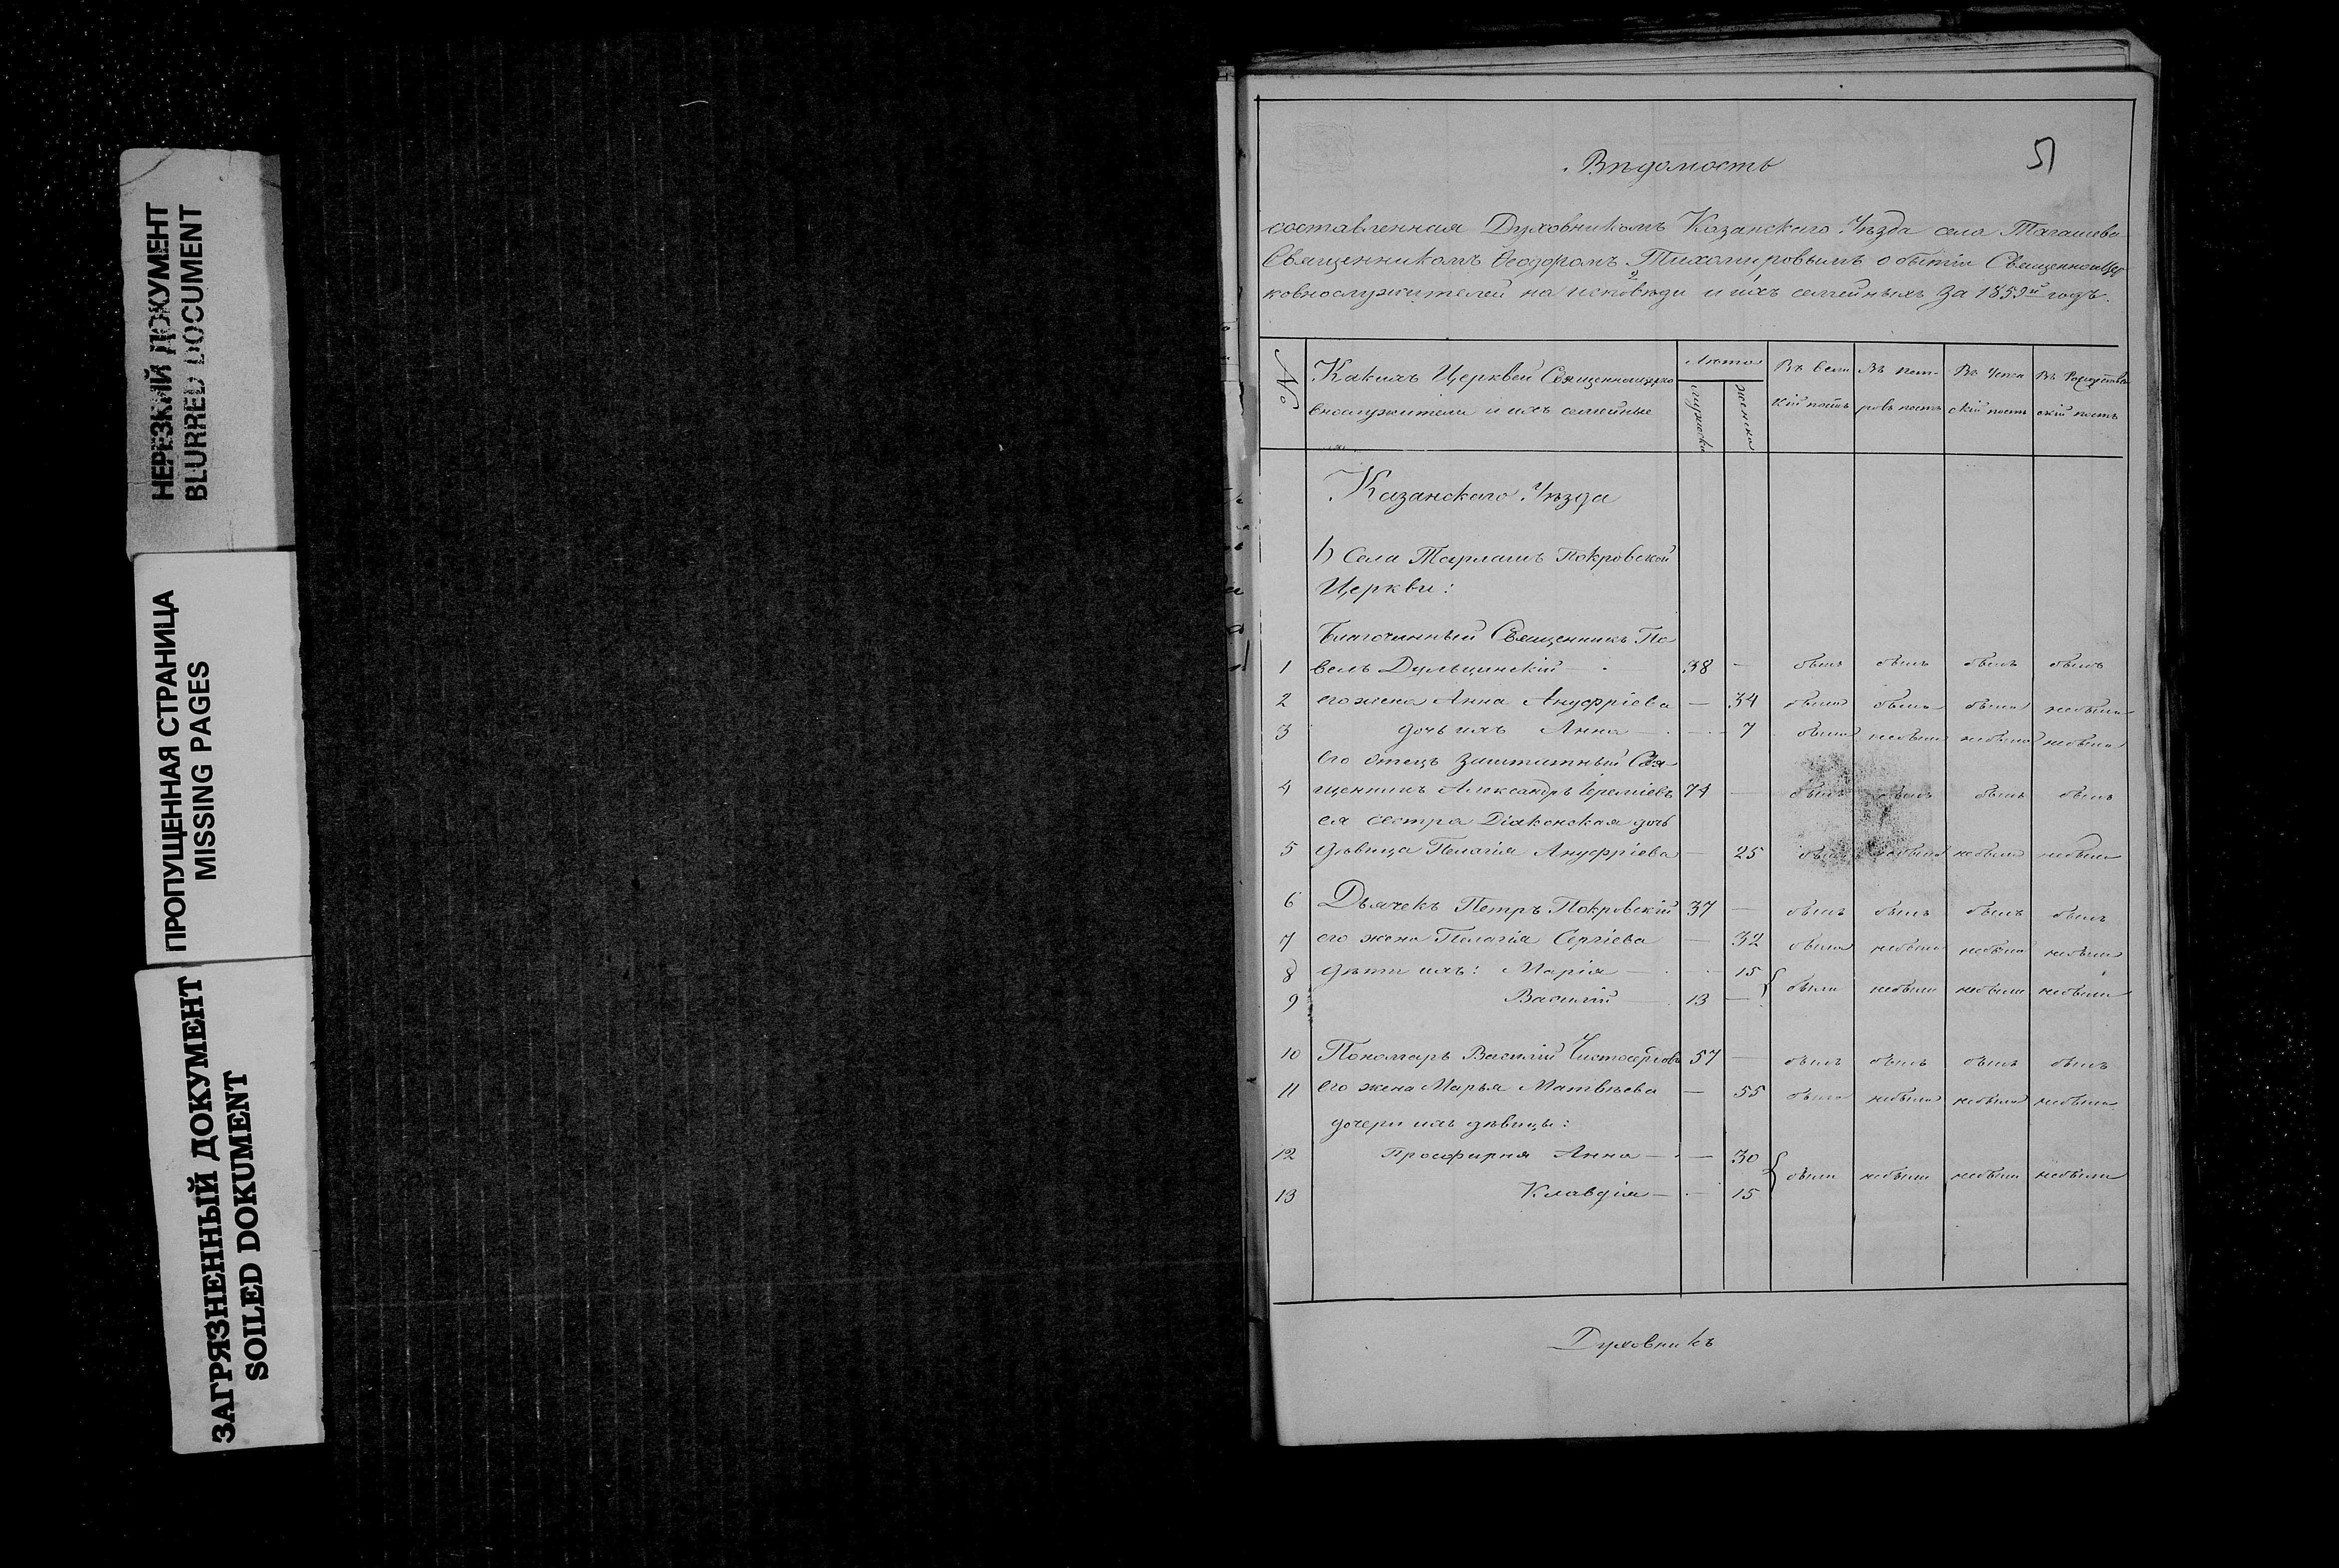 НЕРЕЗКИЙ ДОКУМЕНТ
BLURRED DOCUMENT
ПРОПУЩЕННАЯ СТРАНИЦА
MISSING PAGES
ЗАГРЯЗНЕННЫЙ ДОКУМЕНТ
SOILED DOKUMENT
51
Вѣдомость
составленная Духовникомъ Казанскаго Уѣзда села Тагашева
Священникомъ Ѳеодоромъ Тихомировымъ о бытіи Священноцер
ковнослужителей на исповѣди и ихъ семейныхъ за 1859й годъ.
№ Какихъ Церквей Священноцерко Лѣта Въ вели Въ Пет- Въ Успен Въ Рождествен
внослужители и ихъ семейные мужеска женска кій постъ ровъ постъ скій постъ скій постъ
Казанскаго Уѣзда
1) Села Тарлашъ Покровской
Церкви:
Благочинный Священникъ Па
1 велъ Дульцинскій — 38 — былъ былъ былъ былъ
2 его жена Анна Ануфріева — 34 была была была небыла
3 дочь ихъ Анна — — 7 была небыла небыла небыла
его отецъ Заштатный Свя-
4 щенникъ Александръ Іереміевъ 74 — былъ былъ былъ былъ
ея сестра Діаконская дочь
5 дѣвица Пелагія Ануфріева — 25 была небыла небыла небыла
6 Дьячекъ Петръ Покровскій 37 — былъ былъ былъ былъ
7 его жена Пелагія Сергіева — 32 была небыла небыла небыла
8 дѣти ихъ: Марія — — 15
9 Василій — 13 — были небыли небыли небыли
10 Пономарь Василій 57 — былъ былъ былъ былъ
11 его жена Марья Матвѣева — 55 была небыла небыла небыла
дочери ихъ дѣвицы:
12 Просфирня Анна — — 30
были небыли небыли небыли
13 Клавдія — — 15
Духовникъ